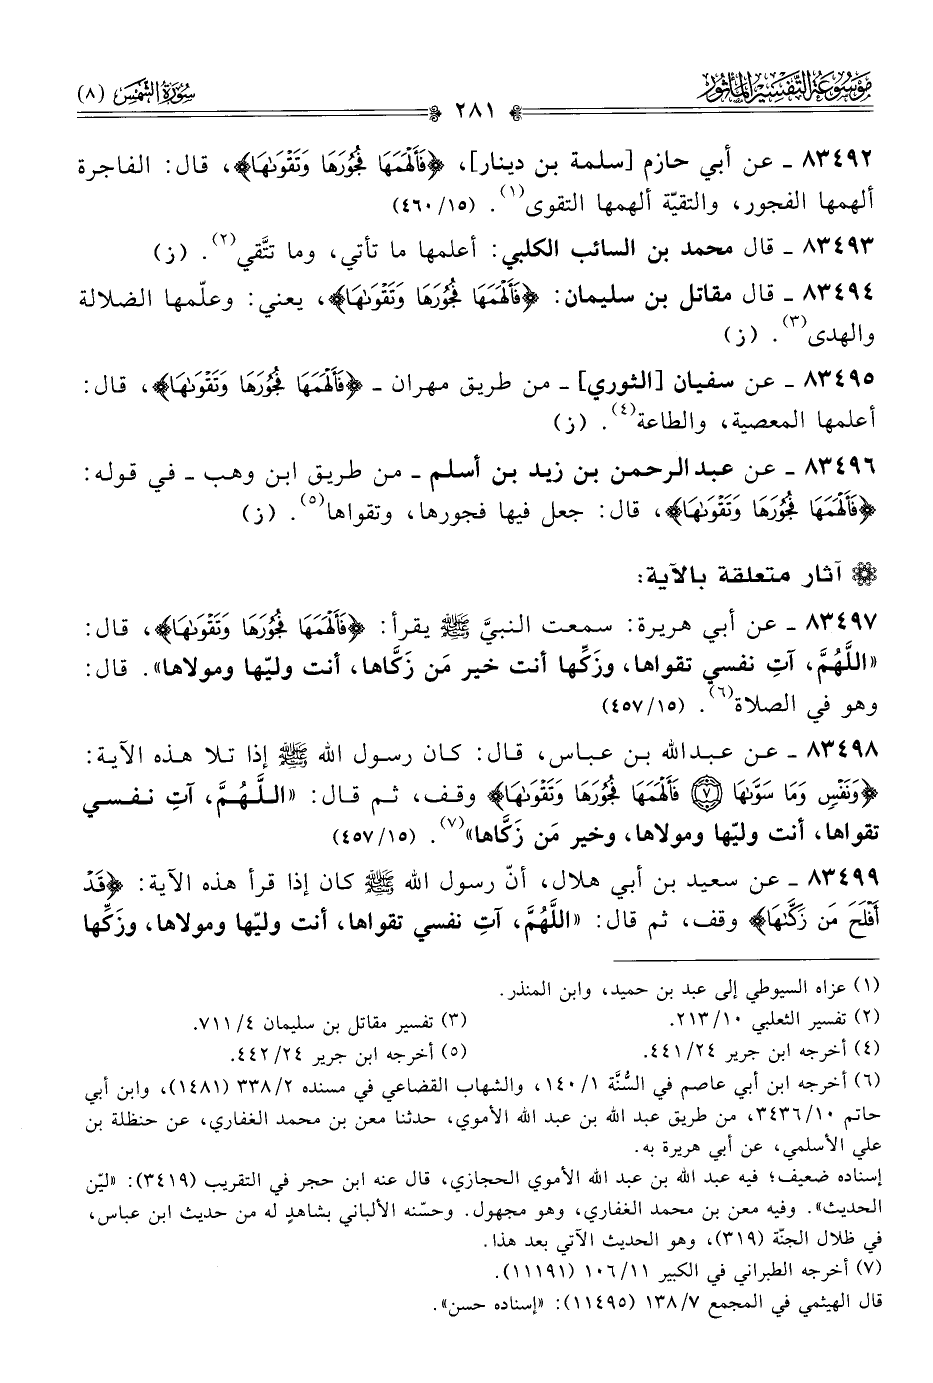 موسوعة التفسير المأثور
سورة الشمس (٨)
٢٨١
٨٣٤٩٢ ـ عن أبي حازم [سلمة بن دينار]، ﴿فَأَلْهَمَهَا فُجُورَهَا وَتَقْوَىٰهَا﴾، قال: الفاجرة
ألهمها الفجور، والتقيّة ألهمها التقوى(١). (١٥/ ٤٦٠)
٨٣٤٩٣ ـ قال محمد بن السائب الكلبي: أعلمها ما تأتي، وما تتَّقي(٢). (ز)
٨٣٤٩٤ ـ قال مقاتل بن سليمان: ﴿فَأَلْهَمَهَا فُجُورَهَا وَتَقْوَىٰهَا﴾، يعني: وعلّمها الضلالة
والهدى(٣). (ز)
٨٣٤٩٥ ـ عن سفيان [الثوري] ـ من طريق مهران ـ ﴿فَأَلْهَمَهَا فُجُورَهَا وَتَقْوَىٰهَا﴾، قال:
أعلمها المعصية، والطاعة(٤). (ز)
٨٣٤٩٦ ـ عن عبد الرحمن بن زيد بن أسلم ـ من طريق ابن وهب ـ في قوله:
﴿فَأَلْهَمَهَا فُجُورَهَا وَتَقْوَىٰهَا﴾، قال: جعل فيها فجورها، وتقواها(٥). (ز)
آثار متعلقة بالآية:
٨٣٤٩٧ ـ عن أبي هريرة: سمعت النبيَّ ﷺ يقرأ: ﴿فَأَلْهَمَهَا فُجُورَهَا وَتَقْوَىٰهَا﴾، قال:
«اللَّهُمَّ، آتِ نفسي تقواها، وزكِّها أنت خير مَن زَكَّاها، أنت وليّها ومولاها». قال:
وهو في الصلاة(٦). (١٥/ ٤٥٧)
٨٣٤٩٨ ـ عن عبد الله بن عباس، قال: كان رسول الله ﷺ إذا تلا هذه الآية:
﴿وَنَفْسٍ وَمَا سَوَّىٰهَا ٧ فَأَلْهَمَهَا فُجُورَهَا وَتَقْوَىٰهَا﴾ وقف، ثم قال: «اللَّهُمَّ، آتِ نفسي
تقواها، أنت وليّها ومولاها، وخير مَن زكَّاها»(٧). (١٥/ ٤٥٧)
٨٣٤٩٩ ـ عن سعيد بن أبي هلال، أنّ رسول الله ﷺ كان إذا قرأ هذه الآية: ﴿قَدْ
أَفْلَحَ مَن زَكَّىٰهَا﴾ وقف، ثم قال: «اللَّهُمَّ، آتِ نفسي تقواها، أنت وليّها ومولاها، وزكِّها
(١) عزاه السيوطي إلى عبد بن حميد، وابن المنذر.
(٢) تفسير الثعلبي ١٠/ ٢١٣. (٣) تفسير مقاتل بن سليمان ٤/ ٧١١.
(٤) أخرجه ابن جرير ٢٤/ ٤٤١. (٥) أخرجه ابن جرير ٢٤/ ٤٤٢.
(٦) أخرجه ابن أبي عاصم في السُّنَّة ١/ ١٤٠، والشهاب القضاعي في مسنده ٢/ ٣٣٨ (١٤٨١)، وابن أبي
حاتم ١٠/ ٣٤٣٦، من طريق عبد الله بن عبد الله الأموي، حدثنا معن بن محمد الغفاري، عن حنظلة بن
علي الأسلمي، عن أبي هريرة به.
إسناده ضعيف؛ فيه عبد الله بن عبد الله الأموي الحجازي، قال عنه ابن حجر في التقريب (٣٤١٩): «ليّن
الحديث». وفيه معن بن محمد الغفاري، وهو مجهول. وحسّنه الألباني بشاهدٍ له من حديث ابن عباس،
في ظلال الجنّة (٣١٩)، وهو الحديث الآتي بعد هذا.
(٧) أخرجه الطبراني في الكبير ١١/ ١٠٦ (١١١٩١).
قال الهيثمي في المجمع ٧/ ١٣٨ (١١٤٩٥): «إسناده حسن».